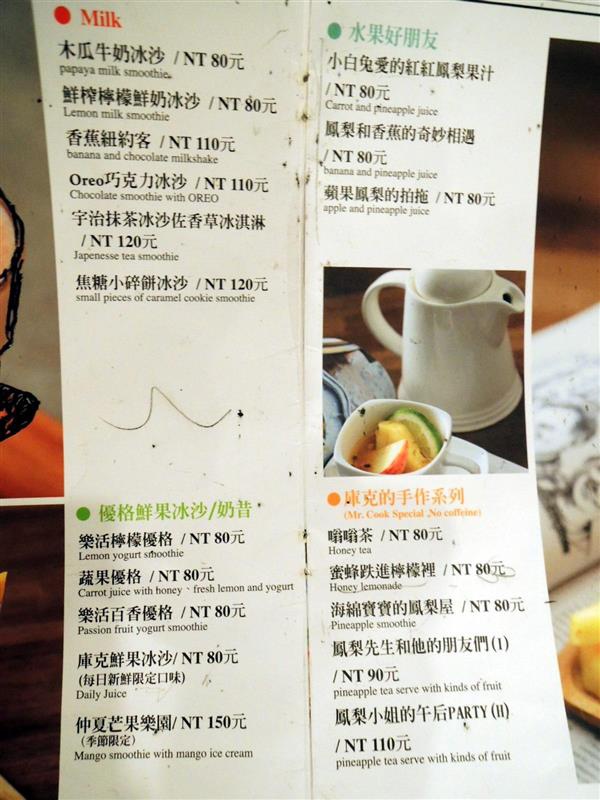 Milk
木瓜牛奶冰沙 / NT 80元
papaya milk smoothie
鮮榨檸檬鮮奶冰沙 / NT 80元
Lemon milk smoothie
香蕉紐約客 / NT 110元
banana and chocolate milkshake
Oreo巧克力冰沙 / NT 110元
Chocolate smoothie with OREO
宇治抹茶冰沙佐香草冰淇淋
/ NT 120元
Japenesse tea smoothie
焦糖小碎餅冰沙 / NT 120元
small pieces of caramel cookie smoothie
優格鮮果冰沙/奶昔
樂活檸檬優格 / NT 80元
Lemon yogurt smoothie
蔬果優格 / NT 80元
Carrot juice with honey、fresh lemon and yogurt
樂活百香優格 / NT 80元
Passion fruit yogurt smoothie
庫克鮮果冰沙/ NT 80元
(每日新鮮限定口味)
Daily Juice
仲夏芒果樂園/ NT 150元
(季節限定)
Mango smoothie with mango ice cream
水果好朋友
小白兔愛的紅紅鳳梨果汁
/ NT 80元
Carrot and pineapple juice
鳳梨和香蕉的奇妙相遇
/ NT 80元
banana and pineapple juice
蘋果鳳梨的拍拖 / NT 80元
apple and pineapple juice
庫克的手作系列
(Mr. Cook Special .No coffeine)
嗡嗡茶 / NT 80元
Honey tea
蜜蜂跌進檸檬裡 / NT 80元
Honey lemonade
海綿寶寶的鳳梨屋 / NT 80元
Pineapple smoothie
鳳梨先生和他的朋友們(I)
/ NT 90元
pineapple tea serve with kinds of fruit
鳳梨小姐的午后PARTY(II)
/ NT 110元
pineapple tea serve with kinds of fruit